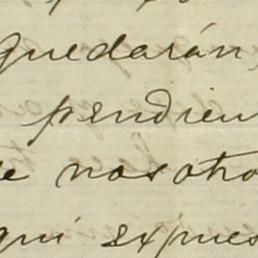 quedarán,
pendien
e nosotro
qui expues